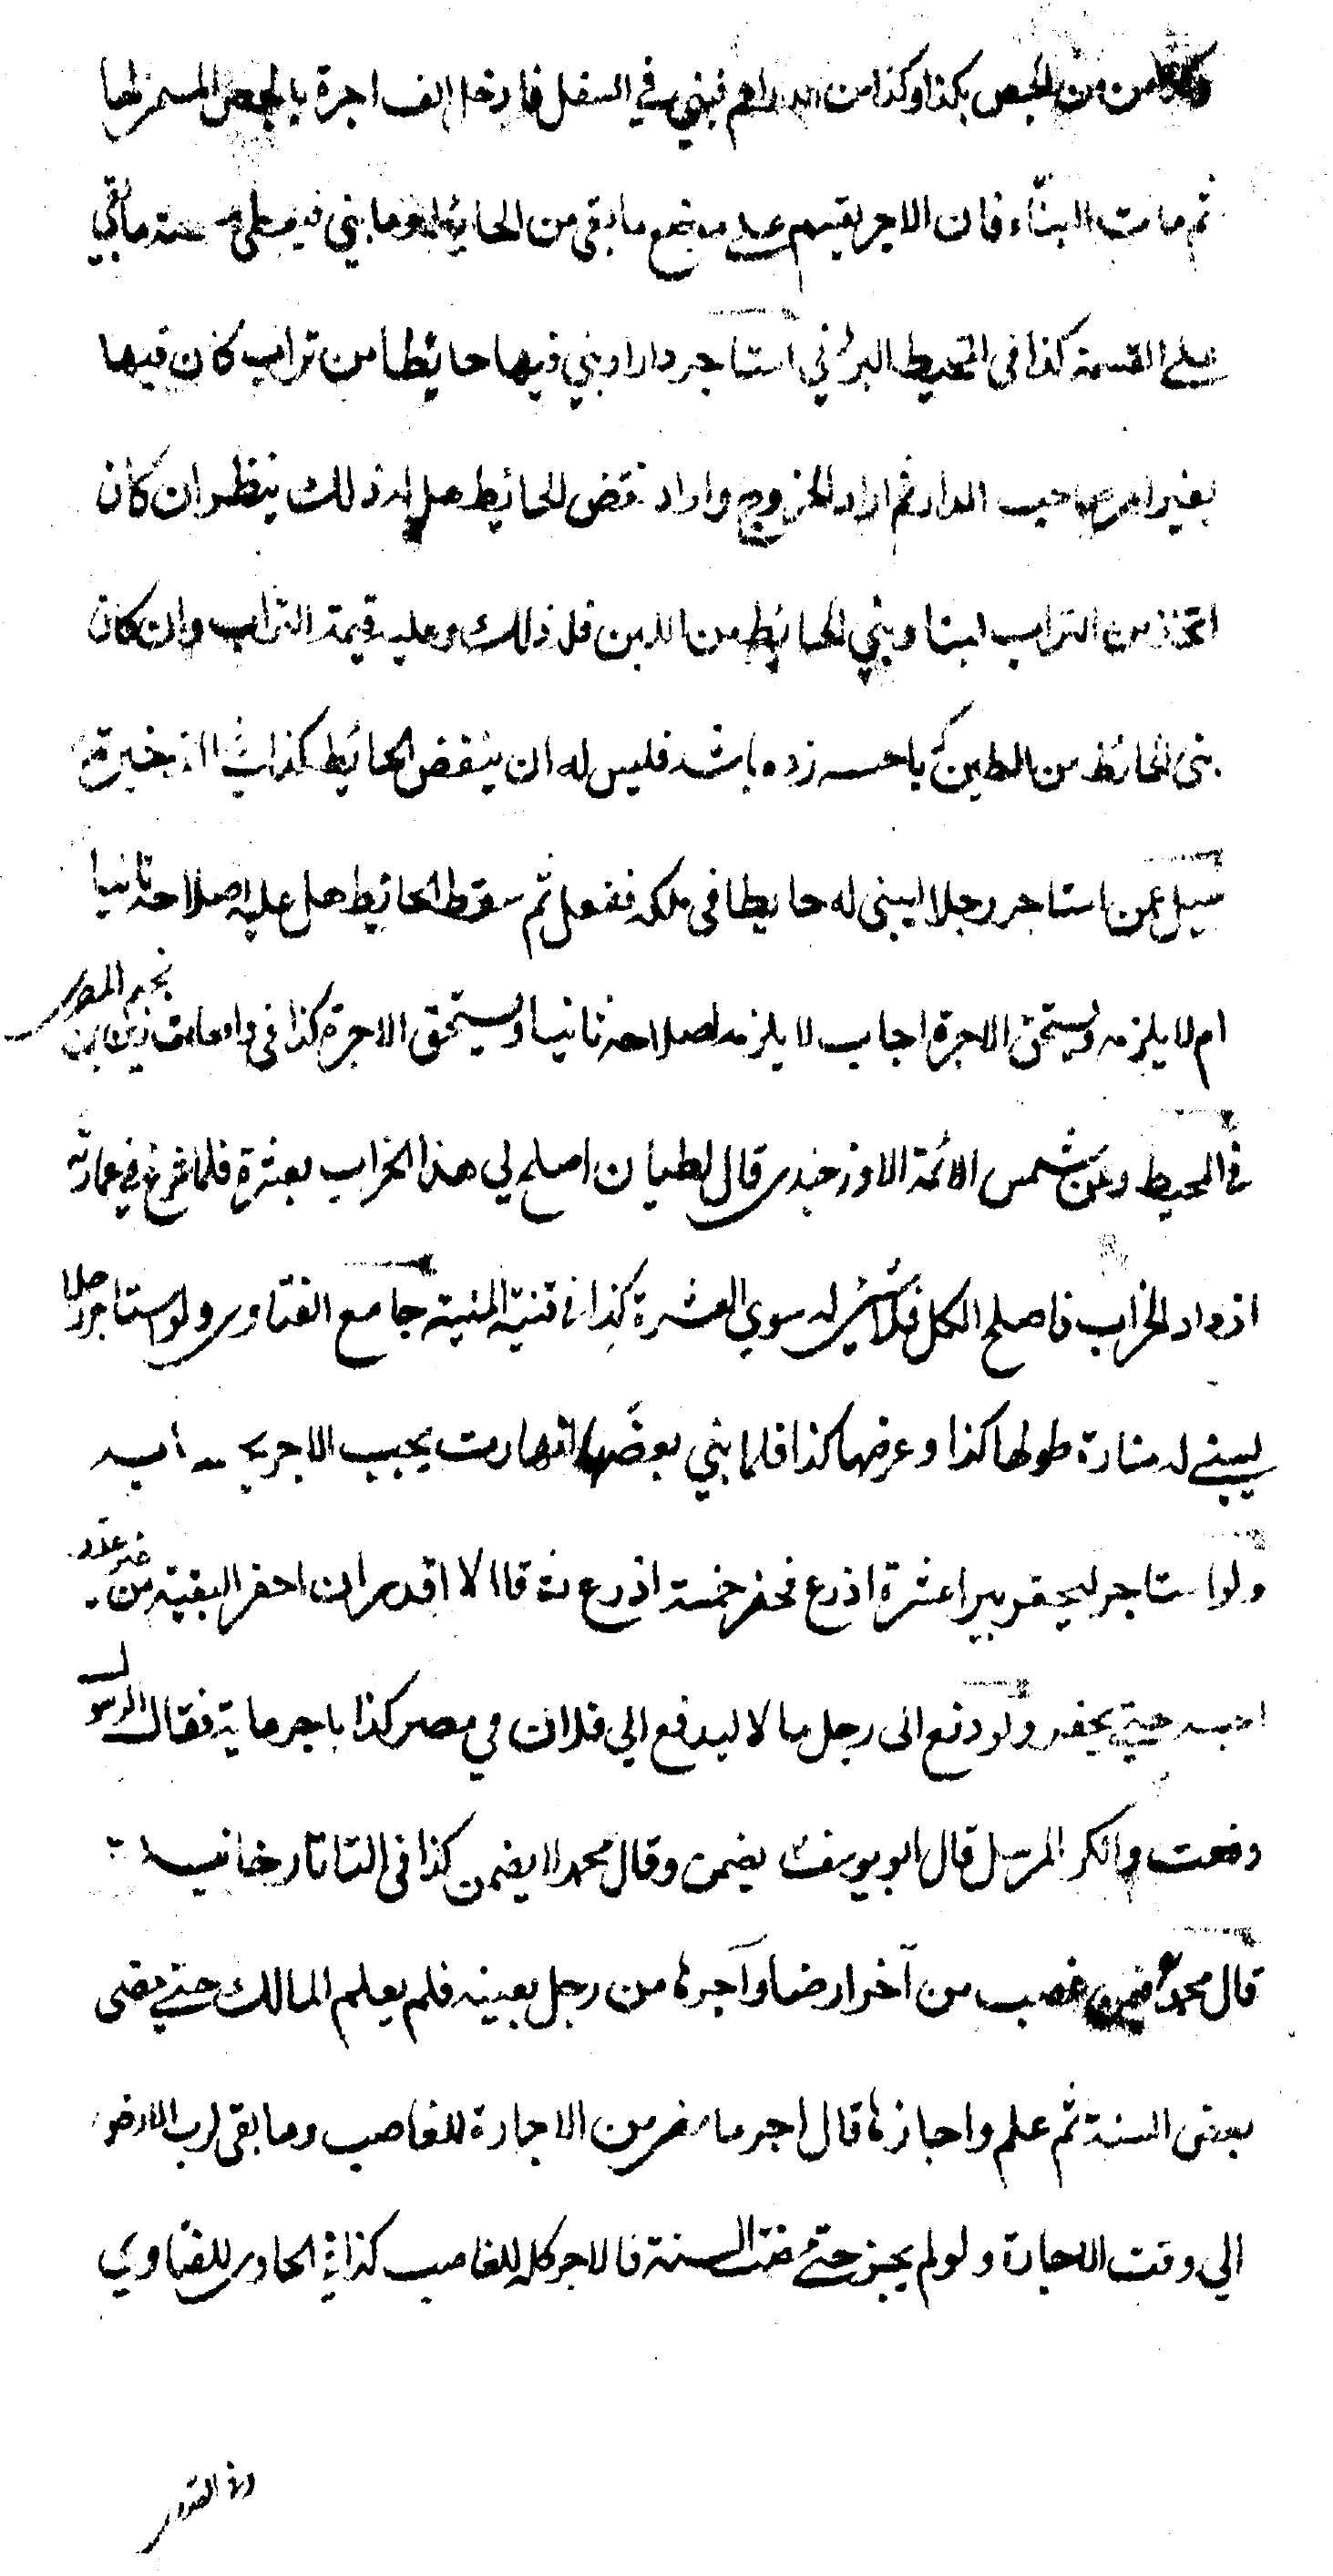 وكذا من من الجص بكذا وكذا من الدراهم فبني في السفل فادخل الف اجرة بالجص المسمى لها
ثم مات البناء فان الاجر يقسم على موضع ما بقى من الحائط وما بني فيعطى حصته ما بقي
على القسمة كذا في المحيط البرهاني استاجر دارا وبني فيها حائطا من تراب كان فيها
بغير امر صاحب الدار ثم اراد الخروج واراد نقض الحائط هل له ذلك ينظر ان كان
اتخذ من التراب لبنا وبني الحائط من اللبن فله ذلك وعليه قيمة التراب وان كان
بنى الحائط من الطين كه باحسه زده باشد فليس له ان ينقض الحائط كذا في الذخيرة
سيل عمن استاجر رجلا ليبنى له حايطا في ملكه ففعل ثم سقوط الحائط هل عليه اصلاحه ثانيا
ام لا يلزمه ويستحق الاجرة اجاب لا يلزمه اصلاحه ثانيا ويستحق الاجرة كذا في واقعات زين بن نجيم المصرى
في المحيط وعن شمس الائمة الاوزجندى قال لطيان اصلح لي هذا الخراب بعشرة فلما فرغ في عمارته
ازداد الخراب فاصلح الكل فلا شئ له سوي العشرة كذا في قنية المنية جامع الفتاوى ولو استاجر رجلا
ليبنے له منارة طولها كذا وعرضها كذا فلما بني بعضها انهارت يجب الاجر بحسابه
ولو استاجر ليحفر بيرا عشرة اذرع فحفر خمسة اذرع فقال لا اقدر ان احفر البقية من غير عذر
احبسه حتي يحفر ولو دفع الى رجل مالا ليدفع الي فلان في مصر كذا باجر ماية فقال الرسول
دفعت وانكر المرسل قال ابو يوسف يضمن وقال محمد لا يضمن كذا في التاتارخانيه
قال محمد فيمن غصب من آخر ارضا وآجرها من رجل بعينه فلم يعلم المالك حتي مضى
بعض السنة ثم علم واجازها قال اجر ما مضى من الاجارة للغاصب وما بقى لرب الارض
الي وقت الاجارة ولو لم يجز حتى مضت السنة فالاجر كله للغاصب كذا في الحاوى للفتاوي